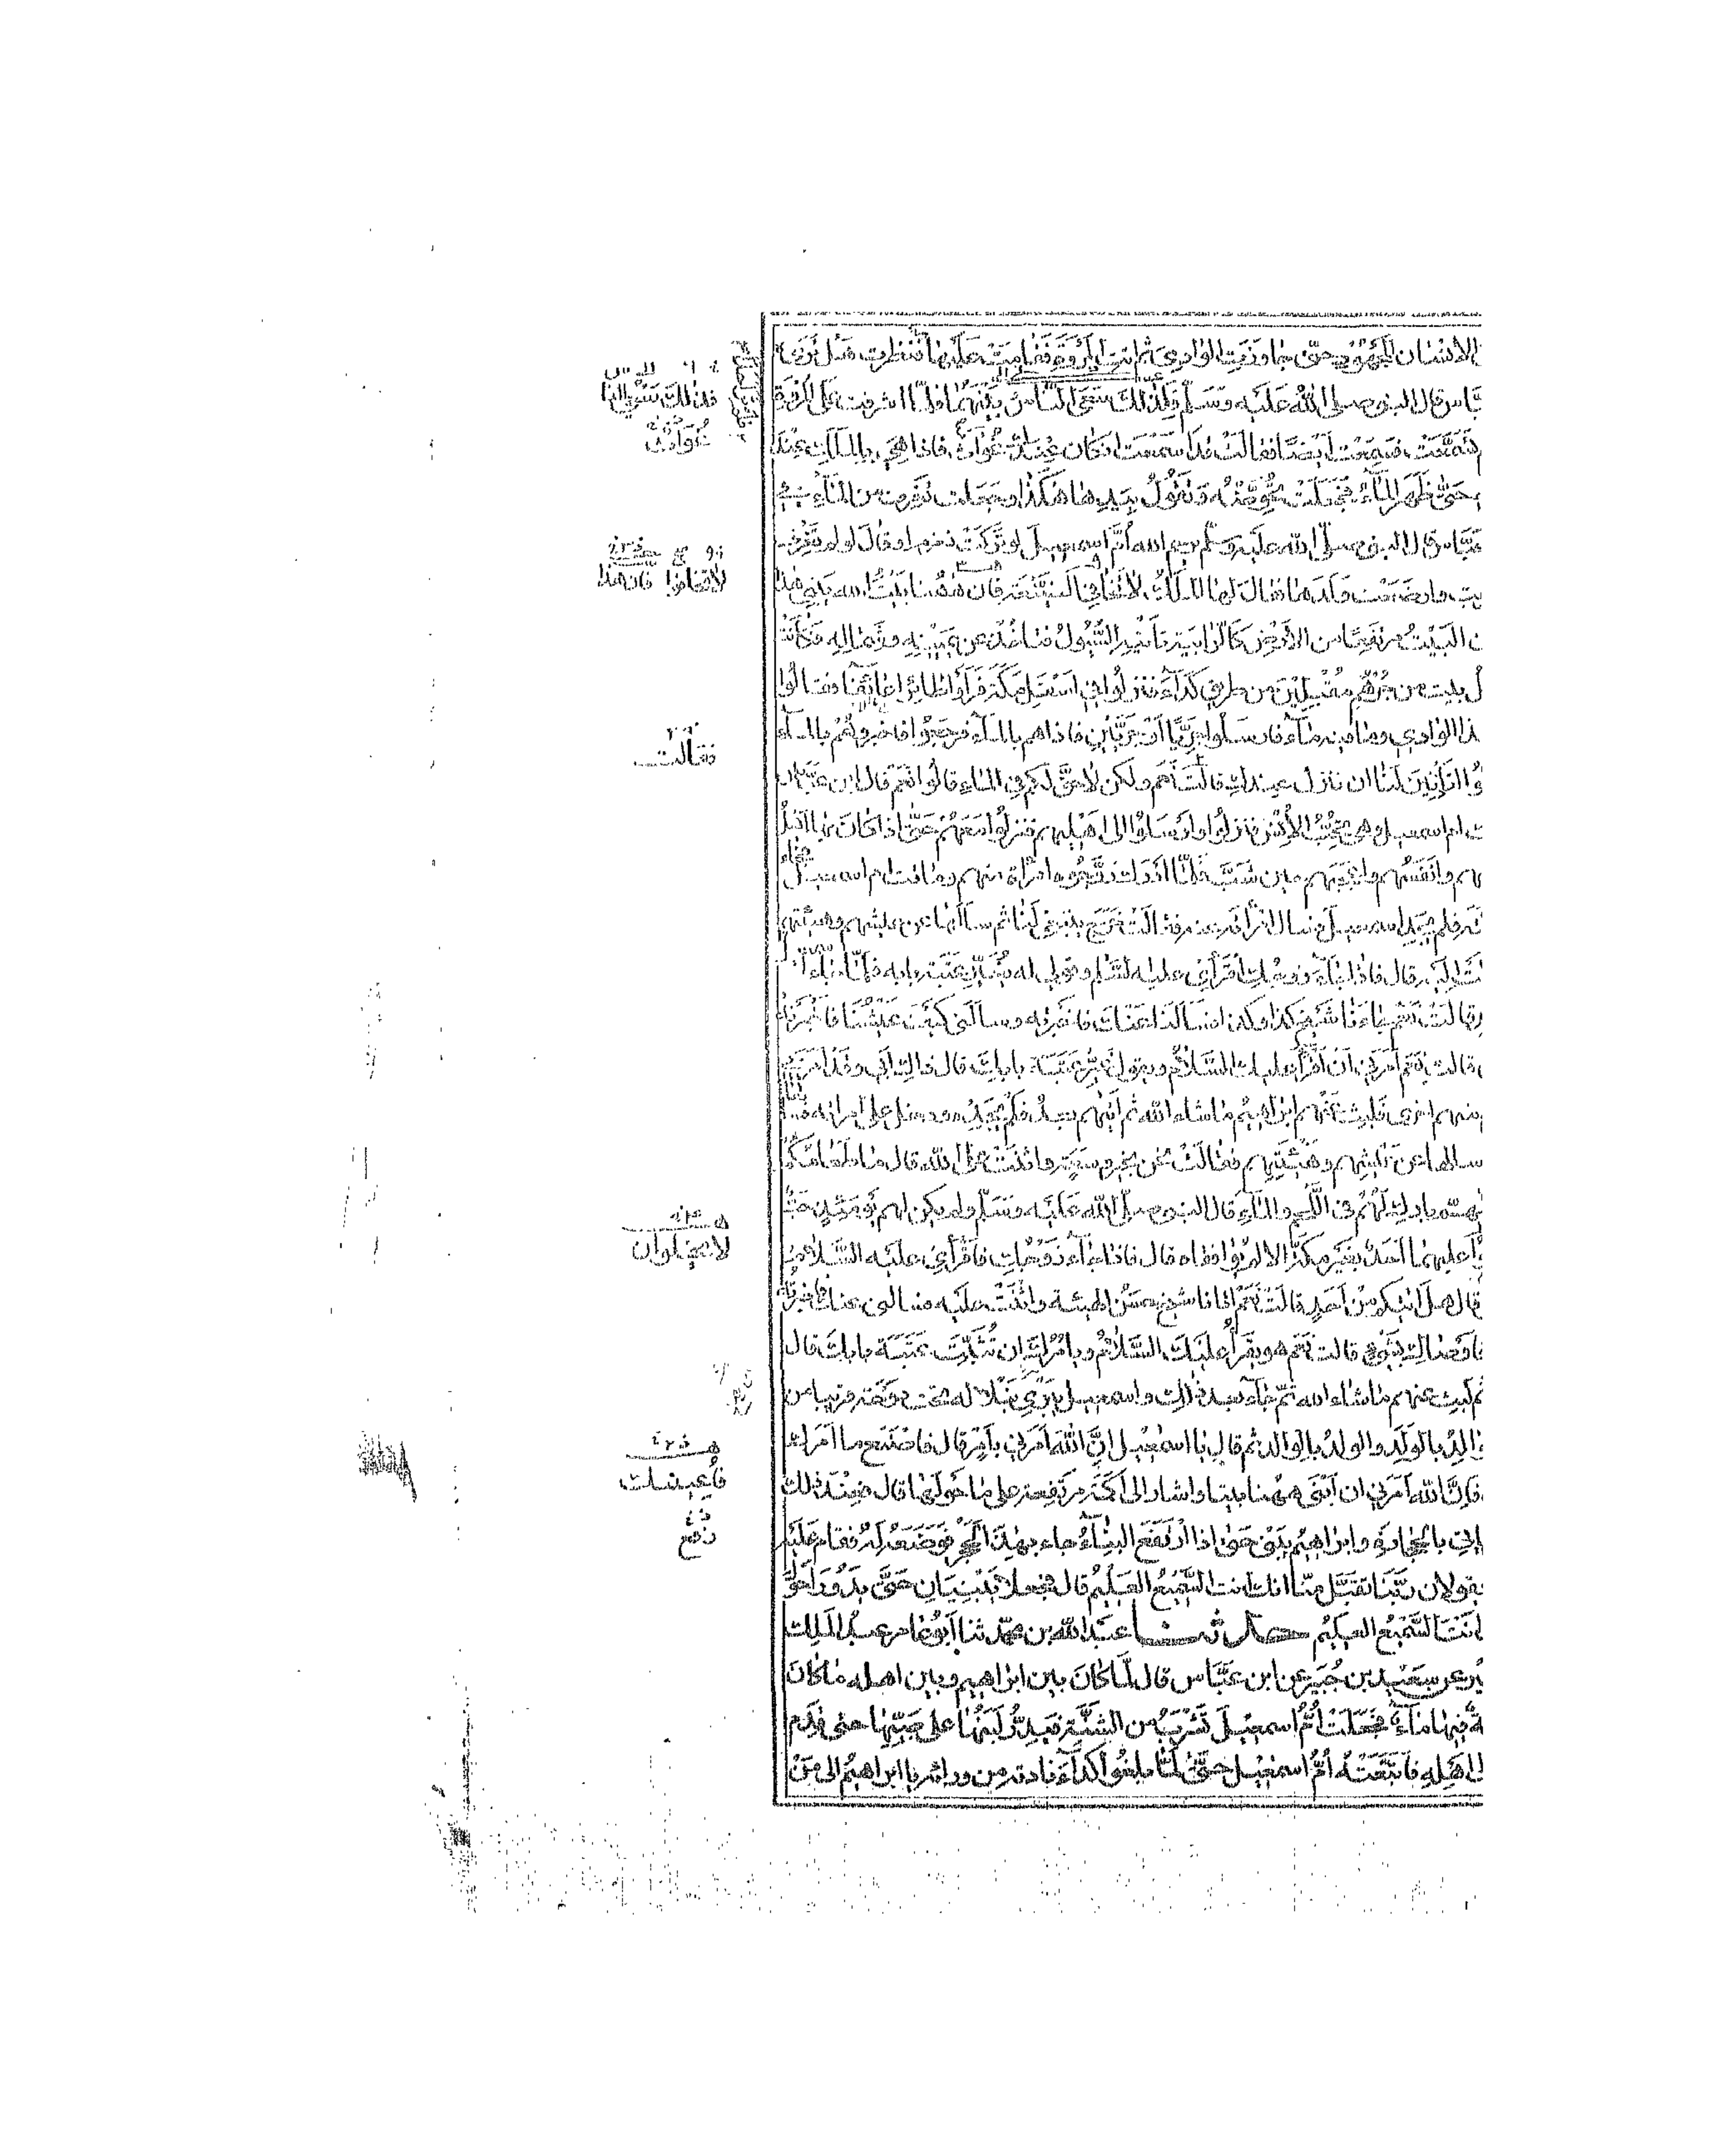 الانسان المجهود حتى جاوزت الوادي ثم اتت المروة فقامت عليها فنظرت هل ترى
عباس قال النبي صلى الله عليه وسلم فلذلك سعى الناس بينهما فلما اشرفت على المروة
تسمعت فسمعت ايضا فقالت قد اسمعت ان كان عندك غواث فاذا هي بالملك عند
حتى ظهر الماء فجعلت تحوضه وتقول بيدها هكذا وجعلت تغرف من الماء في
عباس قال النبي صلى الله عليه وسلم يرحم الله ام اسمعيل لو تركت زمزم او قال لو لم تغرف
وارضعت ولدها فقال لها الملك لا تخافي الضيعة فان ههنا بيت الله يبني هذا
البيت مرتفعا من الارض كالرابية تاتيه السيول فتاخذ عن يمينه وشماله فكانت
بيت من جرهم مقبلين من طريق كداء فنزلوا في اسفل مكة فراوا طائرا عائفا فقالوا
الوادي وما فيه ماء فارسلوا جريا او جريين فاذاهم بالماء فرجعوا فاخبروهم بالماء
اتاذنين لنا ان ننزل عندك قالت نعم ولكن لا حق لكم في الماء قالوا نعم قال ابن عباس
ام اسمعيل وهي تحب الانس فنزلوا وارسلوا الى اهليهم فنزلوا معهم حتى اذا كان بها اهل
وانفسهم واعجبهم حين شب فلما ادرك زوجوه امراة منهم وماتت ام اسمعيل فجاء
فلم يجد اسمعيل فسال امراته عنه فقالت خرج يبتغي لنا ثم سالها عن عيشهم وهيئتهم
اليه قال فاذا جاء زوجك اقرئي عليه السلام وقولي له يغير عتبة بابه فلما جاء
قالت نعم جاءنا شيخ كذا وكذا فسالنا عنك فاخبرته وسالني كيف عيشنا فاخبرته
قالت نعم امرني ان اقرا عليك السلام ويقول غير عتبة بابك قال ذاك ابي وقد امرني
منهم اخرى فلبث عنهم ابراهيم ما شاء الله ثم اتاهم بعد فلم يجده ودخل على امراته
سالها عن عيشهم وهيئتهم فقالت نحن بخير وسعة واثنت على الله قال ما طعامكم
بارك لهم في اللحم والماء قال النبي صلى الله عليه وسلم ولم يكن لهم يومئذ حب
عليهما احد بغير مكة الا لم يوافقاه قال فاذا جاء زوجك فاقرئي عليه السلام
قال هل اتاكم من احد قالت نعم اتانا شيخ حسن الهيئة واثنت عليه فسالني عنك فاخبرته
فاوصاك بشيء قالت نعم هو يقرا عليك السلام ويامرك ان تثبت عتبة بابك قال
ثم لبث عنهم ما شاء الله ثم جاء بعد ذلك واسمعيل يبري نبلا له تحت دوحة قريبا من
الوالد بالولد والولد بالوالد ثم قال يا اسمعيل ان الله امرني بامر قال فاصنع ما امرك
فان الله امرني ان ابني ههنا بيتا واشار الى اكمة مرتفعة على ما حولها قال فعند ذلك
ياتي بالحجارة وابراهيم يبني حتى اذا ارتفع البناء جاء بهذا الحجر فوضعه له فقام عليه
يقولان ربنا تقبل منا انك انت السميع العليم قال فجعلا يبنيان حتى يدورا حول
انت السميع العليم حدثنا عبد الله بن محمد ثنا ابو عامر عبد الملك
عن سعيد بن جبير عن ابن عباس قال لما كان بين ابراهيم وبين اهله ما كان
فيها ماء فجعلت ام اسمعيل تشرب من الشنة فيدر لبنها على صبيها حتى قدم
الى اهله فاتبعته ام اسمعيل حتى لما بلغوا كداء نادته من ورائه يا ابراهيم الى من
فلذلك سعى الناس
غواث
لا تخافوا فان هذا
فقالت
لا يخلوان
فاعينك
رفع